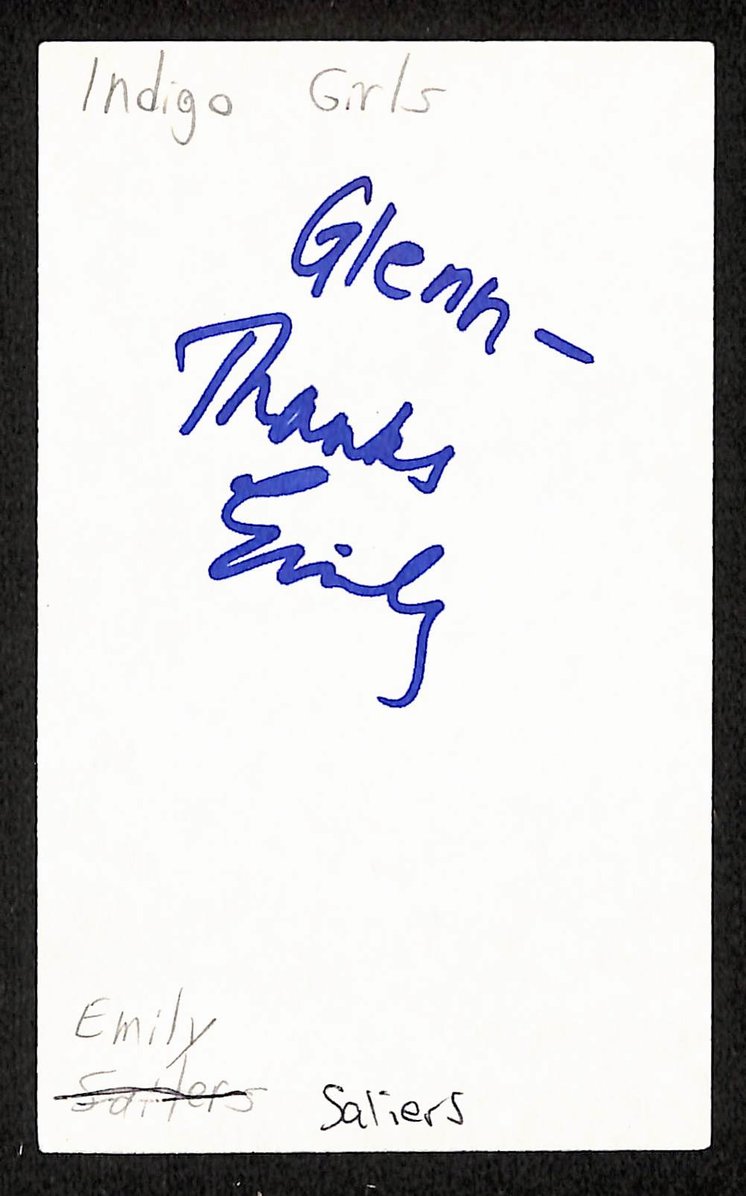 Indigo Girls
Glenn—
Thanks
Emily
Emily
Saliers